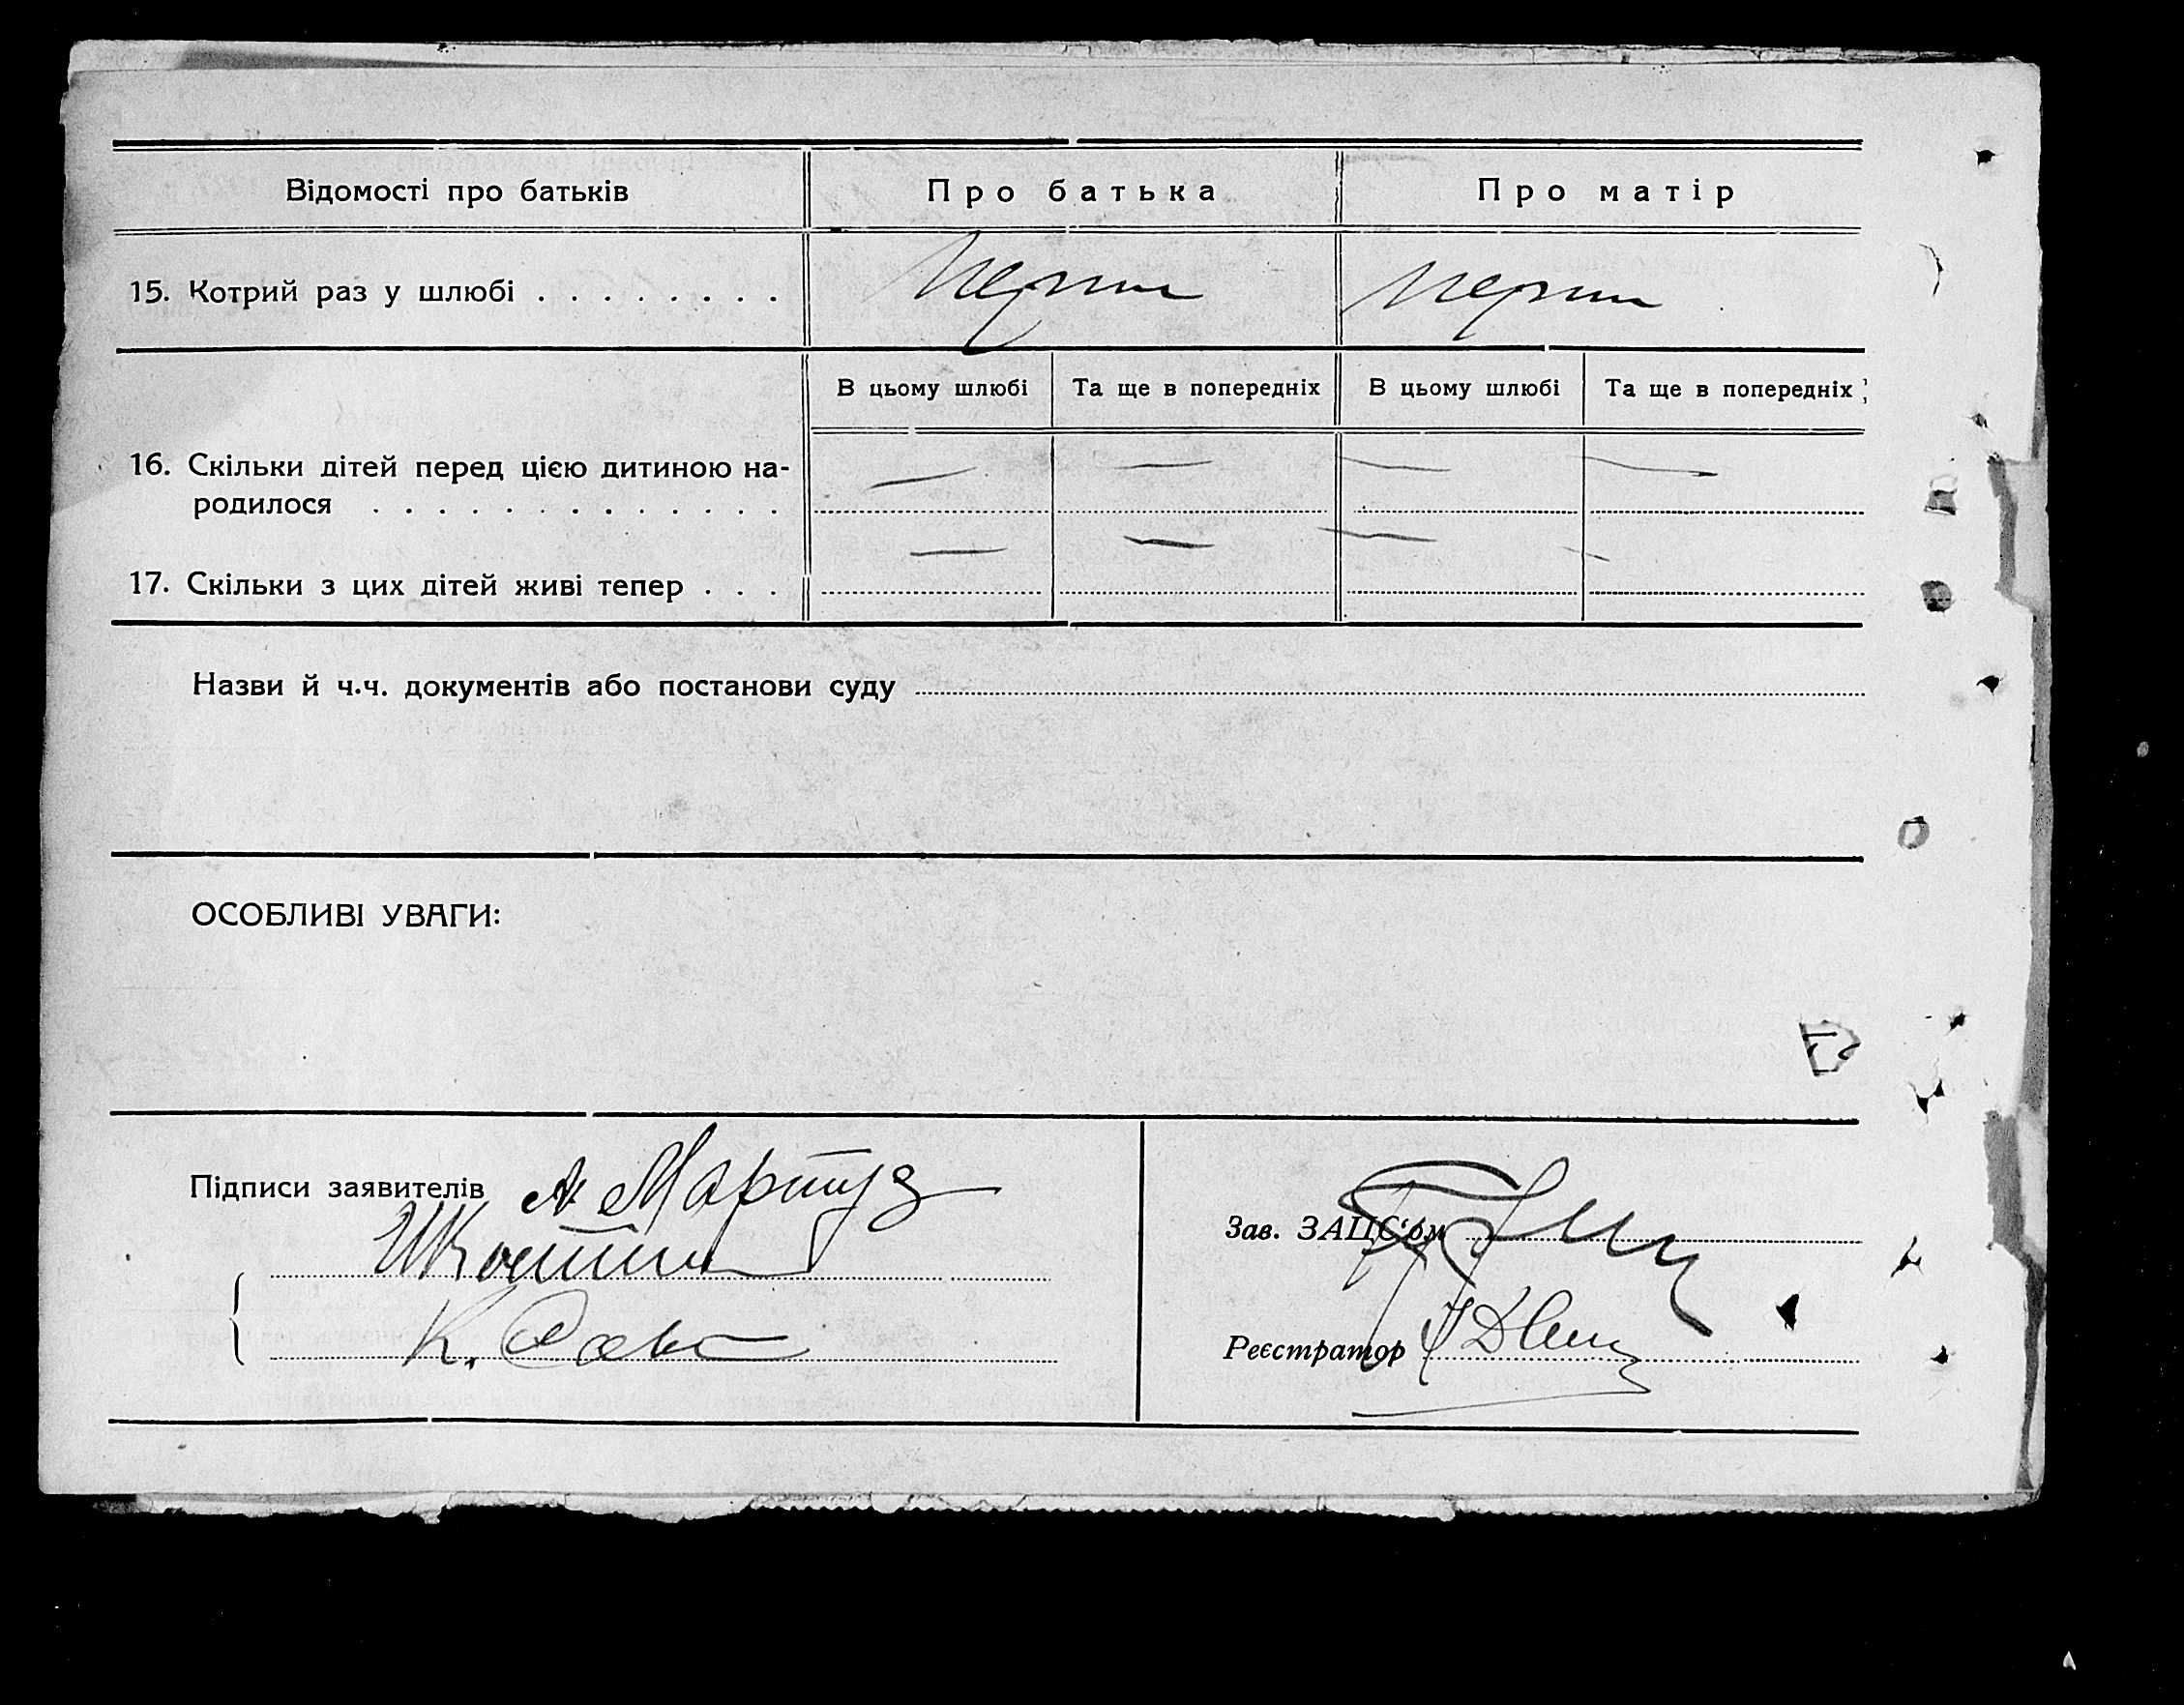 Відомості про батьків Про батька Про матір
15. Котрий раз у шлюбі . . . . . . . .
В цьому шлюбі Та ще в попередніх В цьому шлюбі Та ще в попередніх
16. Скільки дітей перед цією дитиною на- — — — —
родилося . . . . . . . . . . . . .
17. Скільки з цих дітей живі тепер . . . — — — —
Назви й ч.ч. документів або постанови суду
ОСОБЛИВІ УВАГИ:
Підписи заявителів
Зав. ЗАЦС'ом
К.
Реєстратор